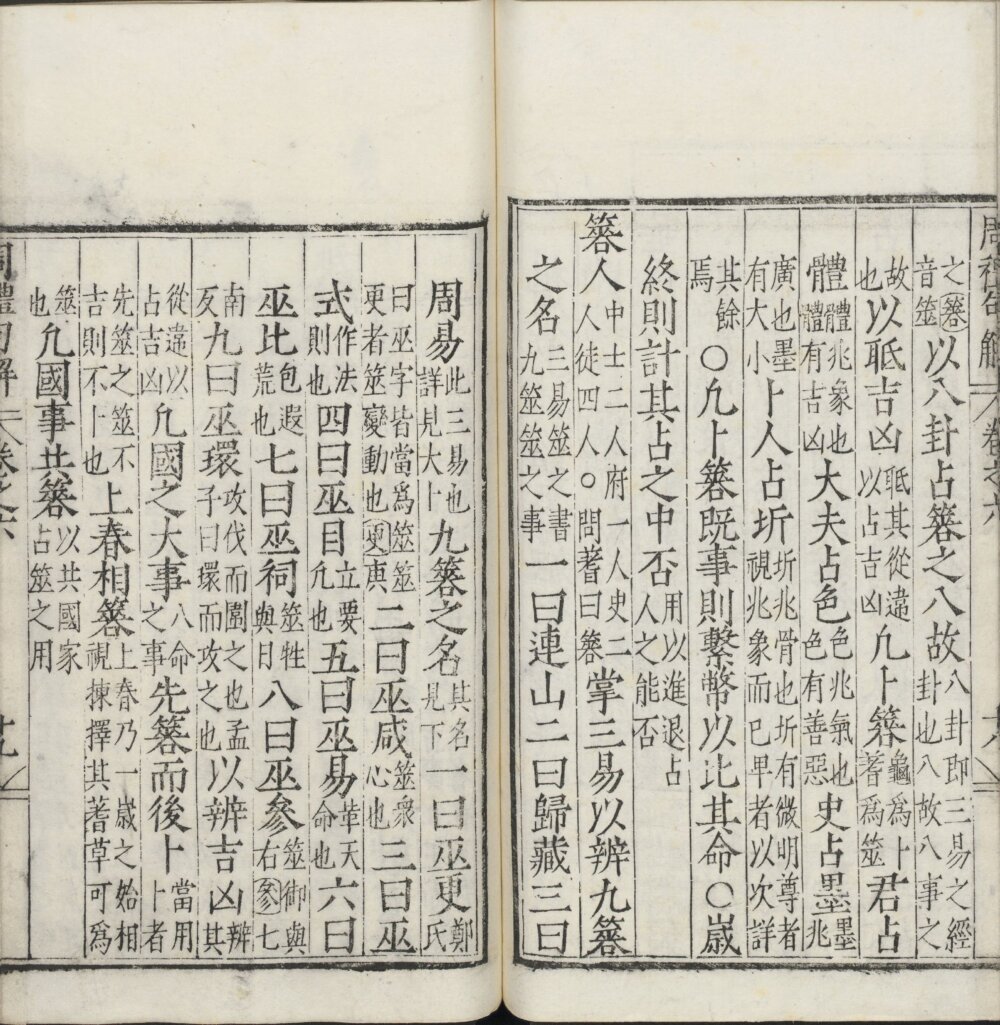 周禮句解 卷之六 十八
之簭音筮以八卦占簭之八故八卦即三易之經卦也八故八事之
故也以眂吉凶眂其從違以占吉凶凡卜簭龜爲卜蓍爲筮君占
體體兆象也體有吉凶大夫占色色兆氣也色有善惡史占墨墨兆
廣也墨有大小卜人占坼坼兆骨也坼有微明尊者視兆象而已卑者以次詳
其餘焉○凡卜簭既事則繫幣以比其命○歲
終則計其占之中否用以進退占人之能否
簭人中士二人府一人史二人徒四人○問蓍曰簭掌三易以辨九簭
之名三易筮之書九筮筮之事一曰連山二曰歸藏三曰
周易此三易也詳見大卜九簭之名其名見下一曰巫更鄭氏
曰巫字皆當爲筮筮更者筮變動也更庚二曰巫咸筮衆心也三曰巫
式作法則也四曰巫目立要凡也五曰巫易革天命也六曰
巫比包遐荒也七曰巫祠筮牲與日八曰巫參筮御與右參七
南反九曰巫環攻伐而圍之也孟子曰環而攻之也以辨吉凶辨其
從違以占吉凶凡國之大事八命之事先簭而後卜當用卜者
先筮之筮不吉則不卜也上春相簭上春乃一歲之始相視揀擇其蓍草可爲
筮也凡國事共簭以共國家占筮之用
周禮句解 卷之六 十九